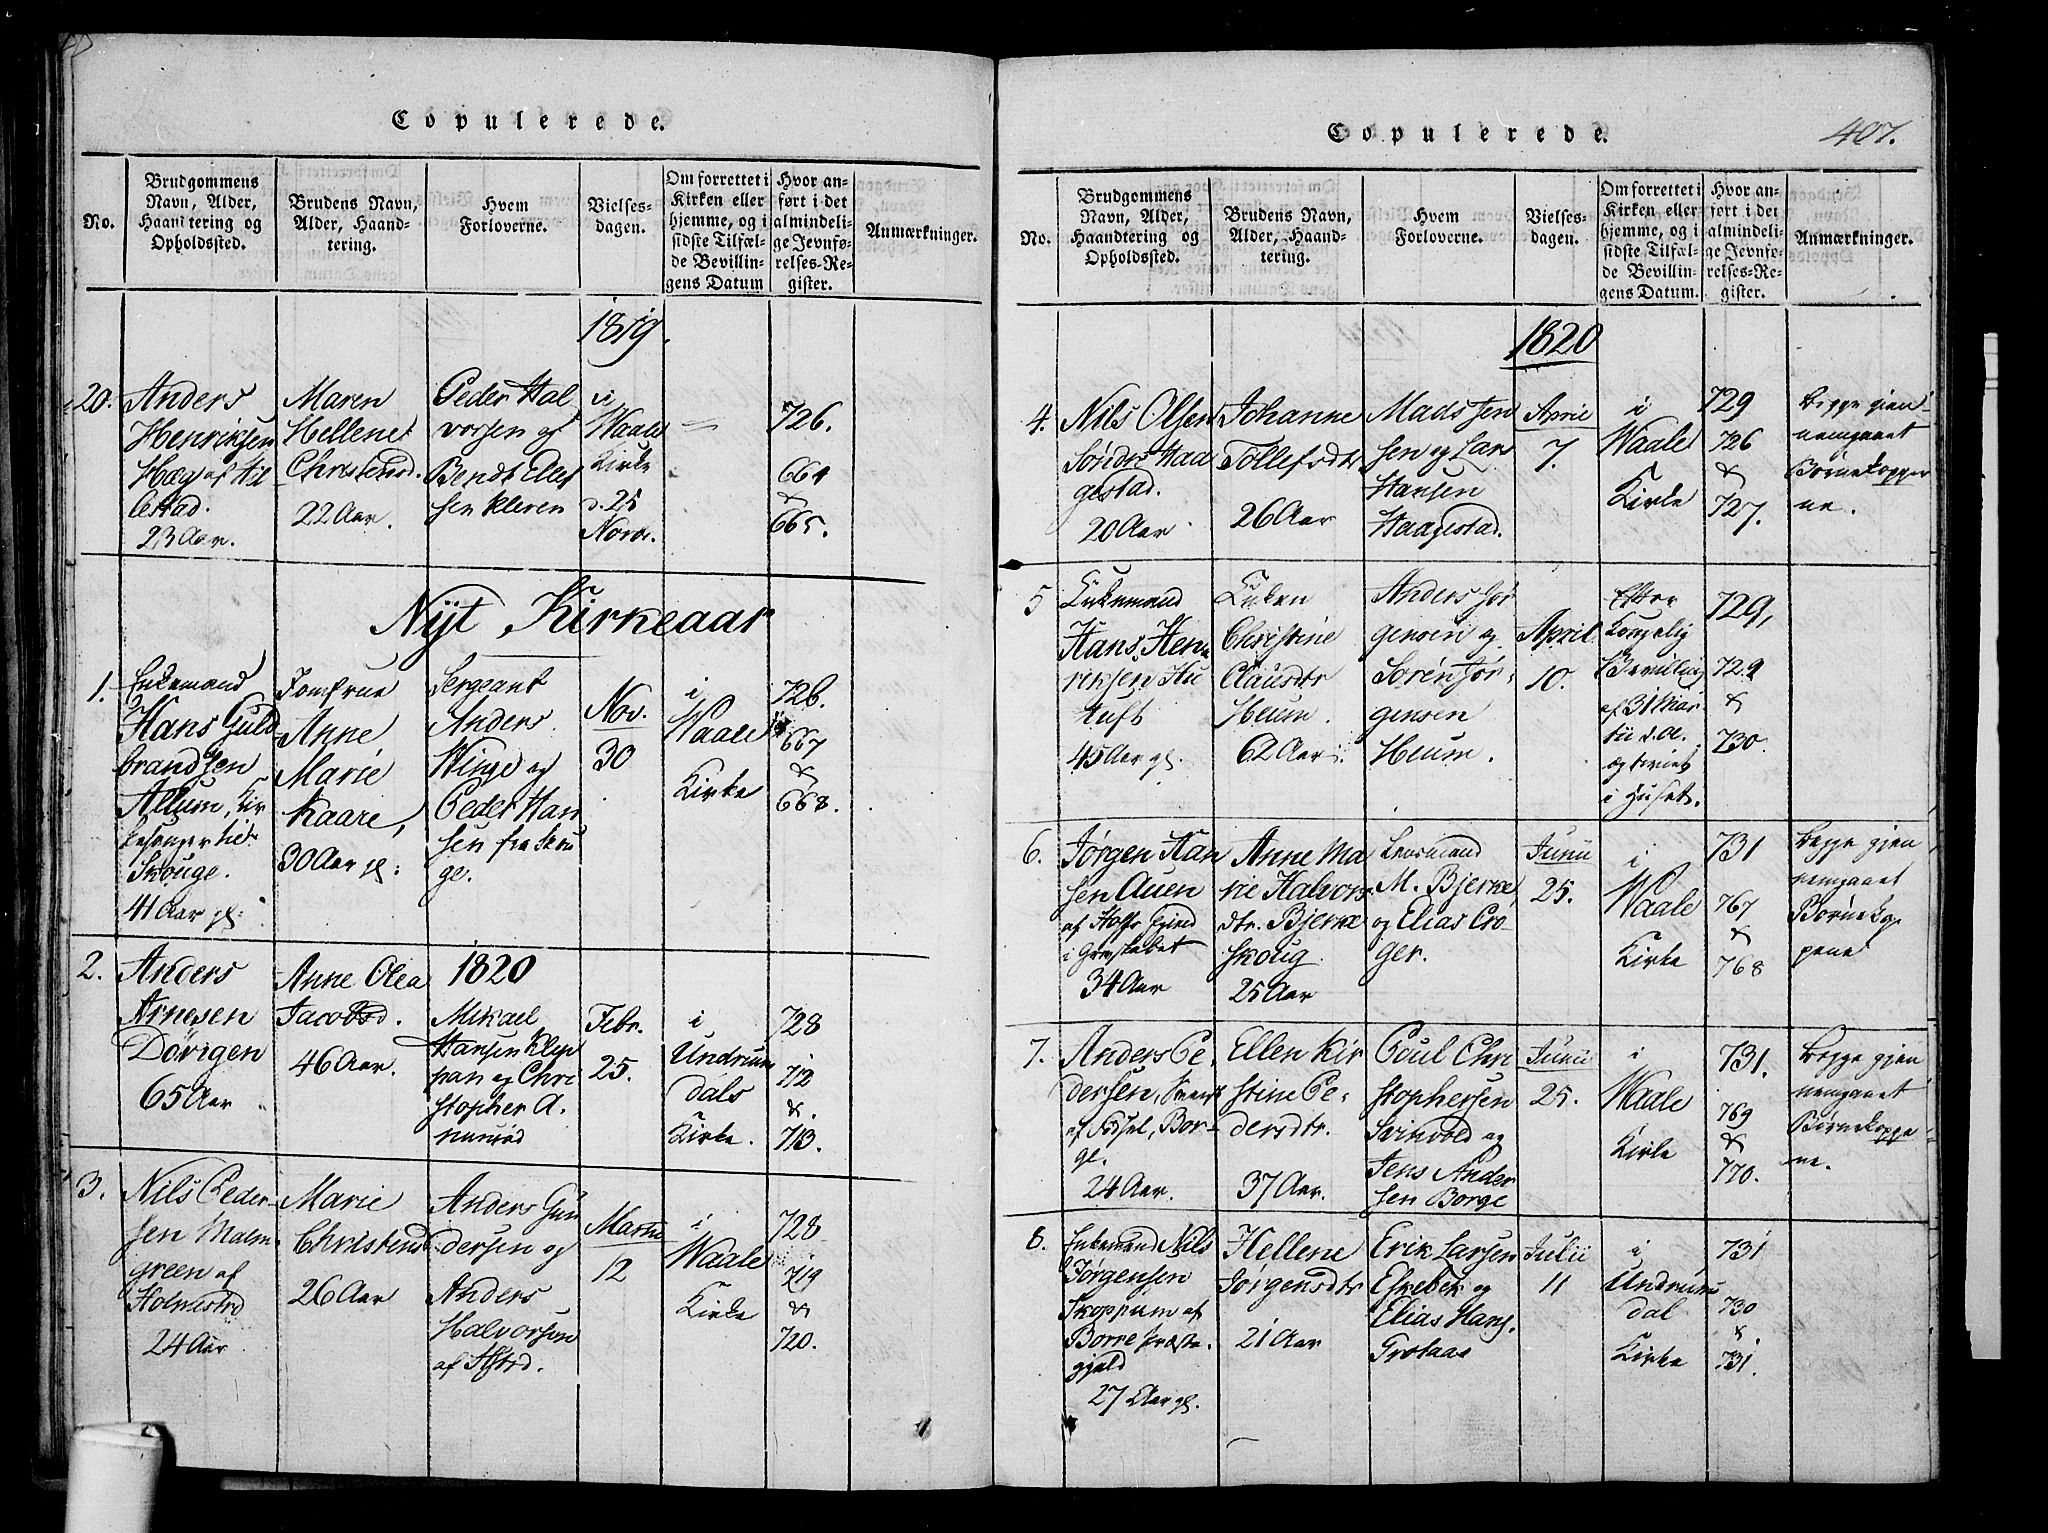 Copulerede.
No.
Brudgommens
Navn, Alder,
Haandtering og
Opholdssted.
Brudens Navn,
Alder, Haand-
tering.
Hvem
Forloverne.
Vielses-
dagen.
Om forrettet i
Kirken eller
hjemme, og i
sidste Tilfæl-
de Bevillin-
gens Datum
Hvor an-
ført i det
almindeli-
ge Jevnfø-
relses-Re-
gister.
Anmærkninger.
1819.
20.
Anders
Henriksen
Hæg af Hil
lestad.
23 Aar.
Maren
Hellene
Christensd.
22 Aar.
Peder Hal
vorsen og
Bendt Ellef
sen Kleven
i
Waale
Kirke
d. 25
Novbr.
726.
664
&
665.
Nÿt Kirkeaar
1.
Enkemand
Hans Guld
brandsen
Allum, Kir
kesanger til
Skouge.
41 Aar gl:
Jomfrue
Anne
Marie
Kaare,
30 Aar gl:
Sergeant
Anders
Winge og
Peder Han
sen fra Skou
ge.
Nov.
30
i
Waale
Kirke
726.
667
&
668.
2.
Anders
Arnesen
Dørigen
65 Aar
Anne Olea
Jacobsd.
46 Aar.
1820
Mikael
Hansen Klop
pan og Chri
stopher A.
Febr.
25.
i
Undrum
dals
Kirke.
728
712
&.
713.
3.
Nils Peder
sen Malm
green af
Holmestrd
24 Aar
Marie
Christensd
26 Aar
Anders Gun
dersen og
Anders
Halvorsen
af
Martii
12
i
Waale
Kirke
728
719
&
720.
Copulerede.
407.
No.
Brudgommens
Navn, Alder,
Haandtering og
Opholdssted.
Brudens Navn,
Alder, Haand-
tering.
Hvem
Forloverne.
Vielses-
dagen.
Om forrettet i
Kirken eller
hjemme, og i
sidste Tilfæl-
de Bevillin-
gens Datum.
Hvor an-
ført i det
almindeli-
ge Jevnfø-
relses-Re-
gister.
Anmærkninger.
1820
4.
Nils Olsen
Sønder Haa
gestad.
20 Aar
Johanne
Tollefsdtr
26 Aar
Mads Jen
sen og Lars
Hansen
Haagestad.
April
7.
i
Waale
Kirke
729
726
&
727.
Begge gien-
nemgaaet
Børnekopper
ne.
5
Enkemand
Hans Hen
riksen Hu
tuft
45 Aar gl.
Enken
Christine
Clausdtr
Heum.
62 Aar.
Anders Jør
gensen og
Søren Jør-
gensen
Heum.
April
10.
Efter
Kongelig
Bevilling
af 31 Mar
tii d. A.
og viet
i Huset.
729,
729
&
730.
6.
Jørgen Han
sen Auen
af Hoffs Gjeld
i Grevskabet
34 Aar
Anne Ma
rie Halvors
dtr. Bjerke
skoug.
25 Aar
Lensmand
M. Bjerke,
og Elias Cro-
ger.
Junii
25.
i
Waale
Kirke
731
767
&
768
Begge gjen
nemgaaet
Børnekop
pene
7.
Anders Pe-
dersen, Svensk
af Fødsel, Bor-
ge.
24 Aar.
Ellen Kir
stine Pe-
dersdtr.
37 Aar.
Poul Chri
stophersen
Svinvold og
Jens Ander
sen Borge
Junii
25.
i
Waale
Kirke
731.
769
&
770.
Begge gjen
nemgaaet
Børnekoppe-
ne.
8.
Enkemand Nils
Jørgensen
Skoppum af
Borre Præste-
gjeld
27 Aar gl.
Hellene
Jørgensdtr
21 Aar
Erik Larsen
Eskebek og
Elias Hans.
Grotaas
Julii
11
i
Undrum
dal
Kirke
731
730
&.
731.